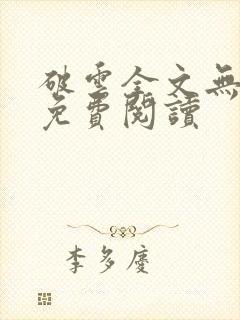 破雲全文無
免費閱讀
李多慶